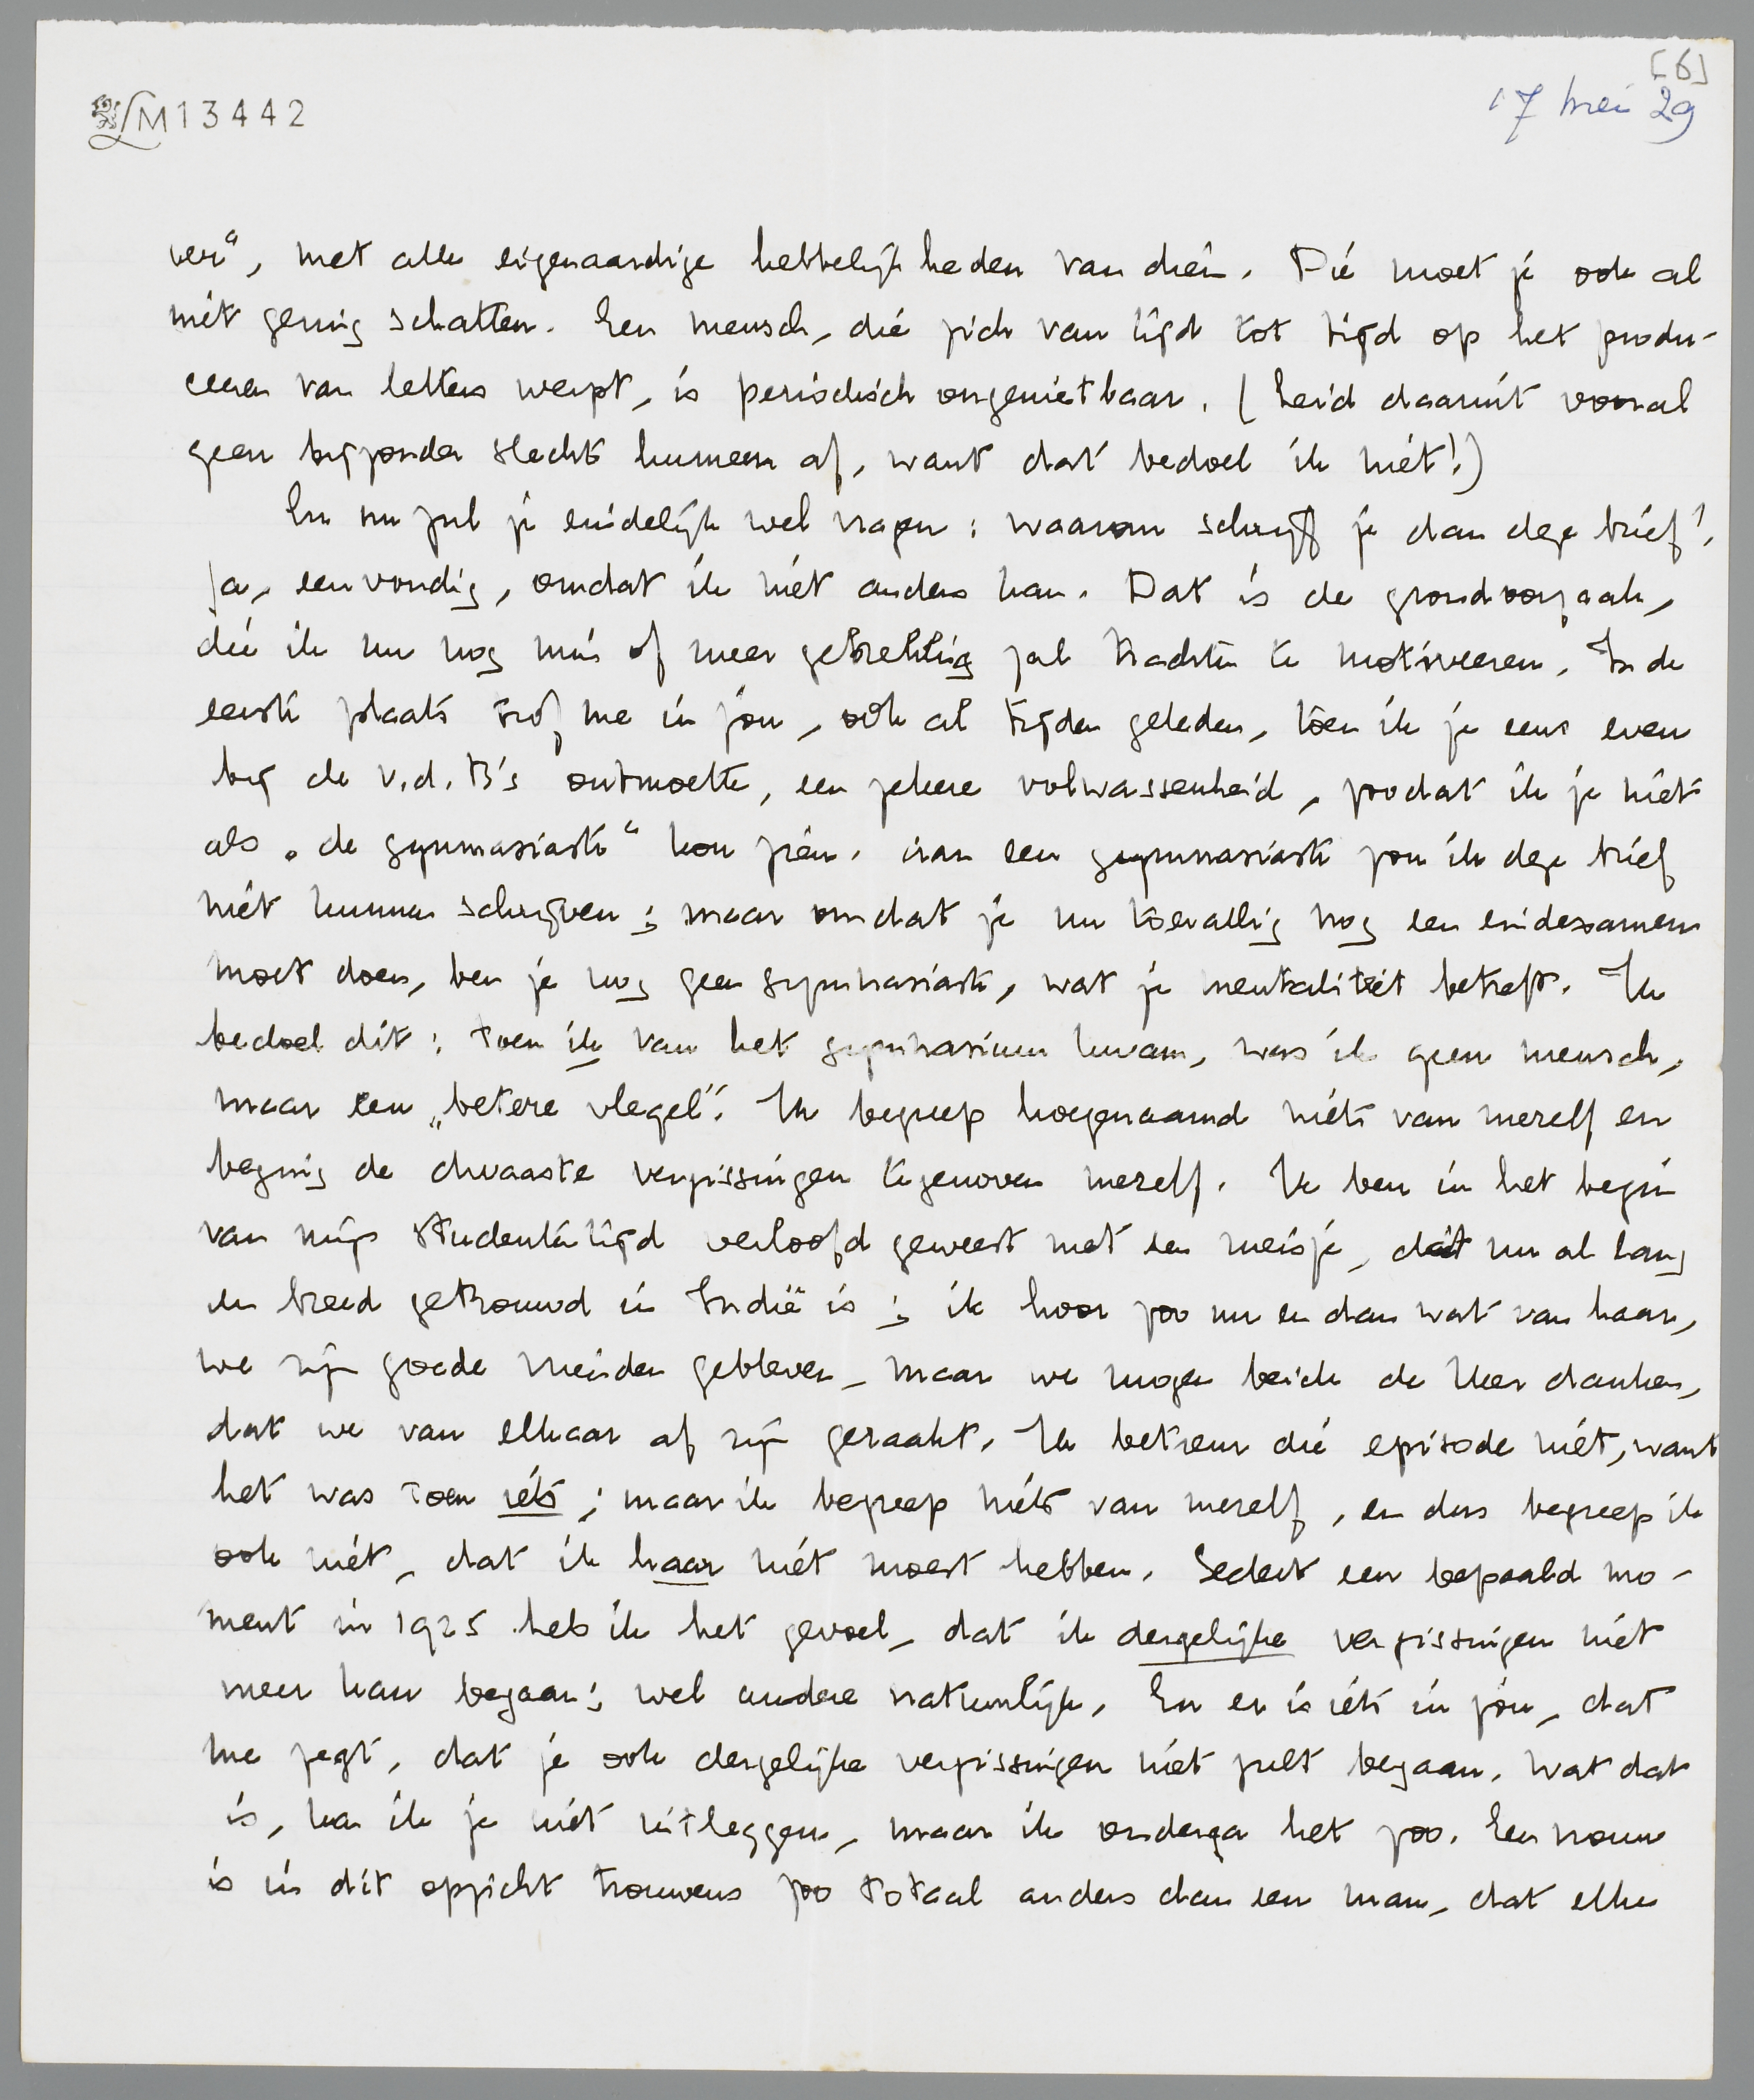 [6]
LM13442
17 mei 29
ver", met alle eigenaardige hebbelijkheden van dien. Die moet je ook al
niet gering schatten. Een mensch, die zich van tijd tot tijd op het produ-
ceeren van letters werpt, is periodisch ongenietbaar. (Leid daaruit vooral
geen bijzonder slecht humeur af, want dat bedoel ik niet!)
En nu zul je eindelijk wel vragen: waarom schrijf je dan deze brief?
Ja, eenvoudig, omdat ik niet anders kan. Dat is de grondoorzaak,
die ik nu nog min of meer gebrekkig zal trachten te motiveeren. In de
eerste plaats trof me in jou, ook al tijden geleden, toen ik je eens even
bij de v.d. B's ontmoette, een zekere volwassenheid, zoodat ik je niet
als „de gymnasiaste" kon zien. Aan een gymnasiaste zou ik deze brief
niet kunnen schrijven; maar omdat je nu toevallig nog een eindexamen
moet doen, ben je nog geen gymnasiaste, wat je mentaliteit betreft. Ik
bedoel dit: toen ik van het gymnasium kwam, was ik geen mensch,
maar een „betere vlegel". Ik begreep hoegenaamd niets van mezelf en
beging de dwaaste vergissingen tegenover mezelf. Ik ben in het begin
van mijn studententijd verloofd geweest met een meisje, dat nu al lang
en breed getrouwd in Indië is; ik hoor zoo nu en dan wat van haar,
we zijn goede vrienden gebleven, maar we mogen beide de Heer danken,
dat we van elkaar af zijn geraakt. Ik betreur die episode niet, want
het was toen iets; maar ik begreep niets van mezelf, en dus begreep ik
ook niet, dat ik haar niet moest hebben. Sedert een bepaald mo-
ment in 1925 heb ik het gevoel, dat ik dergelijke vergissingen niet
meer kan begaan; wel andere natuurlijk. En er is iets in jou, dat
me zegt, dat je ook dergelijke vergissingen niet zult begaan. Wat dat
is, kan ik je niet uitleggen, maar ik onderga het zoo. Een vrouw
is in dit opzicht trouwens zoo totaal anders dan een man, dat elke